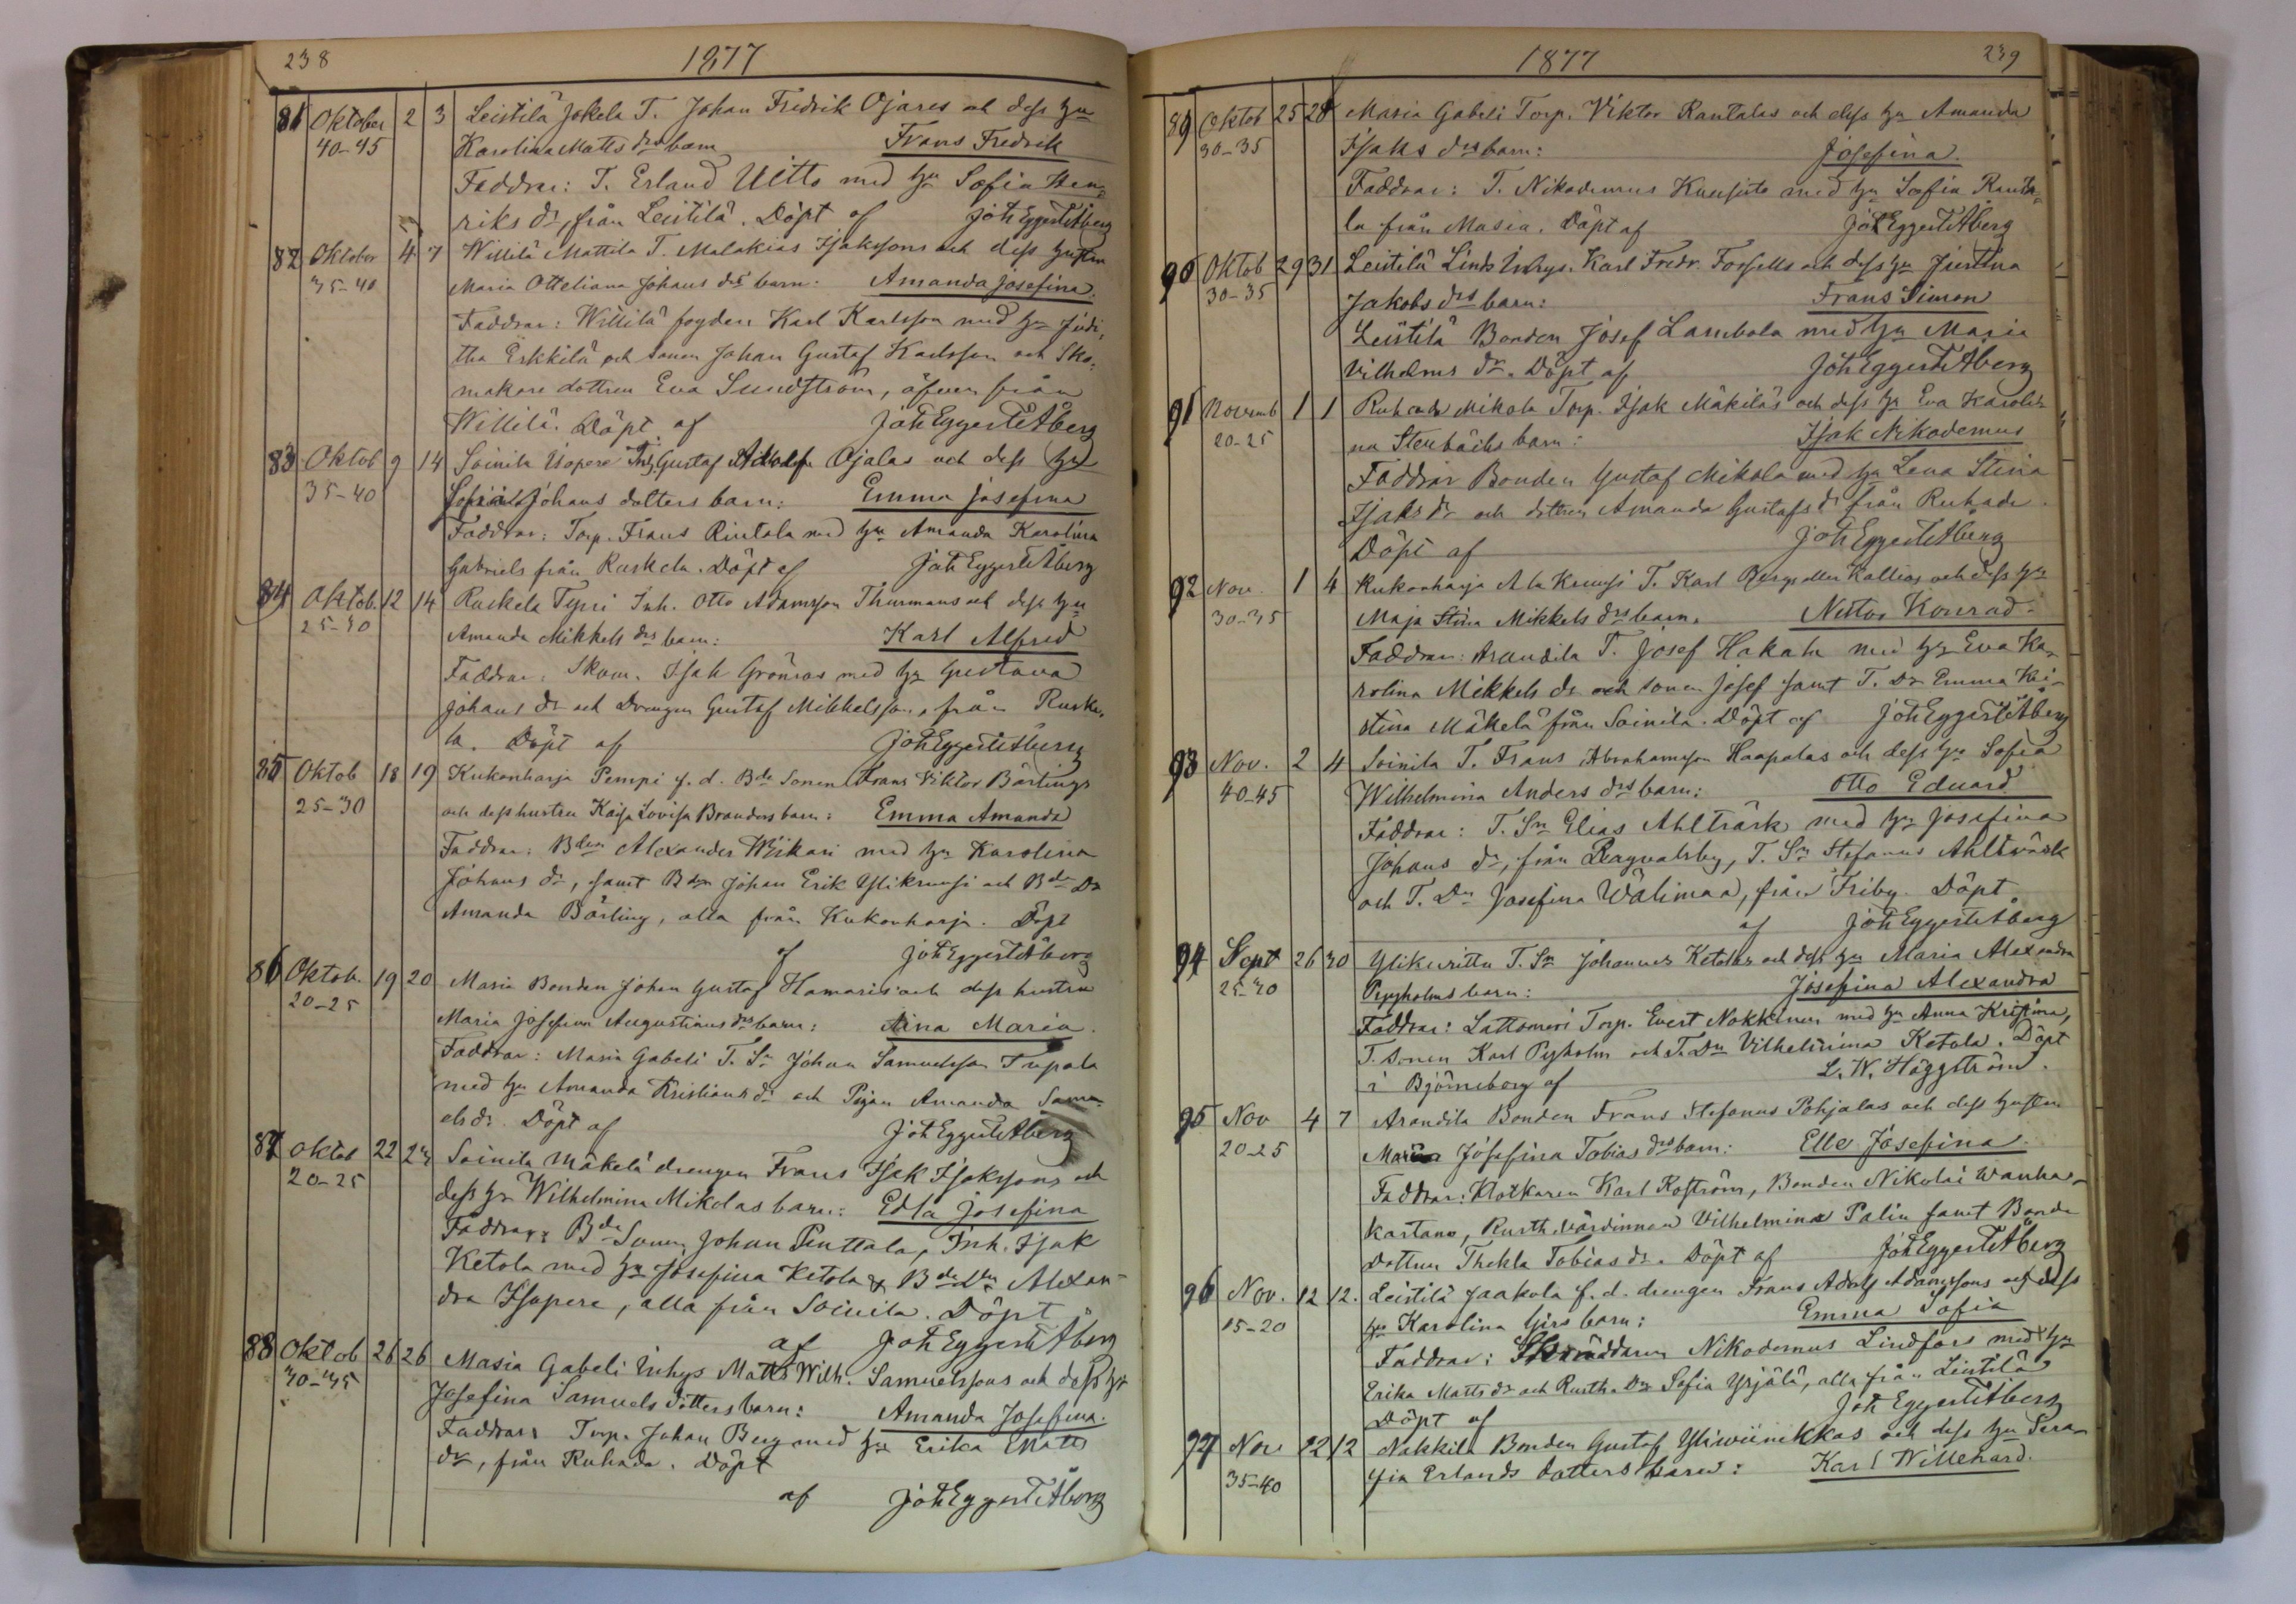 238
1877
81 Oktober 2 3 Leistilä Jokela T. Johan Fredrik Ojares och dess hu
40-45 Karolina Matts drs barn Frans Fredrik
Faddrar: T. Erland Uitto med hu Sofia Hen=
riks dr, från Leistilä. Döpt af Joh Eggert Åberg
82 Oktober 4 7 Willilä Mattila T. Malakias Isakssons och dess hustru
35-40 Maria Otteliana Johans drs barn: Amanda Josefina.
Faddrar: Willilä fogden Karl Karlsson med hu Judi,
tha Erkkilä och sonen Johan Gustaf Karlsson och Sko=
makare dottren Eva Sundström, äfven från
Willilä. Döpt af Joh Eggert Åberg
83 Oktob 9 14 Soinila Isopere Inh. Gustaf Adolf Ojalas och dess hu
35-40 Sofia Johans dotters barn: Emma Josefina
Faddrar: Torp. Frans Rintala med hu Amanda Karolina
Gabriels från Ruskela. Döpt af Joh Eggert Åberg
84 Oktob. 12 14 Ruskela Teyri Inh. Otto Adamsson Thurmans och dess hu
25-30 Amanda Mikkels drs barn: Karl Alfred
Faddrar: Skom. Isak Grönros med hu Gustava
Johans dr och Drengen Gustaf Mikkelsson, från Ruske,
la. Döpt af Joh Eggert Åberg
85 Oktob 18 19 Kukonharja Pempi f. d. Bde Sonen Frans Viktor Bärlings
25-30 och dess hustru Kaisa Lovisa Branders barn: Emma Amanda
Faddrar: Bden Alexander Wiikari med hu Karolina
Johans dr, samt Bden Johan Erik Ylikruusi och Bde Dr
Amanda Bärling, alla från Kukonharja. Döpt
af Joh Eggert Åberg
86 Oktob. 19 20 Masia Bonden Johan Gustaf Hamaris och dess hustru
20-25 Maria Josefina Augustinus drs barn: Aina Maria.
Faddrar: Masia Gabeli T. Sn Johan Samuelsson Tupala
med hu Amanda Kristians dr och Pigan Amanda Samu=
els dr. Döpt af Joh Eggert Åberg
87 Oktob 22 24 Soinila Mäkelä drengen Frans Isak Isakssons och
20-25 dess hu Wilhelmina Mikolas barn: Edla Josefina
Faddrar: Bde Sonen Johan Penttala, Inh. Isak
Ketola med hu Josefina Ketola & Bde Dn Alexan=
dra Isopere, alla från Soinila. Döpt
af Joh Eggert Åberg
88 Oktob 26 26 Masia Gabeli Inhys Matts Wilh. Samuelssons och dess hu
30-35 Josefina Samuels dotters barn: Amanda Josefina.
Faddrar: Torp. Johan Berg med hu Erika Matts
dr, från Ruhade. Döpt
af Joh Eggert Åberg
1877
239
89 Oktob 25 28 Masia Gabeli Torp. Viktor Rantalas och dess hu Amanda
30-35 Isaks drs barn: Josefina.
Faddrar: T. Nikodemus Kuusisto med hu Sofia Ranta=
la från Masia. Döpt af Joh Eggert Åberg
90 Oktob 29 31 Leistilä Linds Inhys. Karl Fredr. Forsells och dess hu Justina
30-35 Jakobs drs barn: Frans Simon
Leistilä Bonden Josef Lambola med hu Maria
Vilhelms dr. Döpt af Joh Eggert Åberg
91 Novemb 1 1 Ruhade Mikola Torp. Isak Mäkiläs och dess hu Eva Karoli
20-25 na Stenbäcks barn: Isak Nikodemus
Faddrar Bonden Gustaf Mikola med hu Lena Stina
Isaks dr och dottren Amanda Gustafs dr från Ruhade.
Döpt af Joh Eggert Åberg
92 Nov. 1 4 Kukonharja Ala Kruusi T. Karl Bergs eller Kallios och dess hu
30-35 Maja Stina Mikkels drs barn. Nestor Konrad.
Faddrar: Arandila T. Josef Hakala med hu Eva Ka=
rolina Mikkels dr och sonen Josef samt T. Dr Emma Kri-
stina Mäkelä från Soinila. Döpt af Joh Eggert Åberg
93 Nov. 2 4 Soinila T. Frans Abrahamsson Haapalas och dess hu Sofia
40-45 Wilhelmina Anders drs barn: Otto Eduard
Faddrar: T. Sn Elias Ahlträsk med hu Josefina
Johans dr, från Ragvalsby, T. Sn Stefanus Ahlträsk
och T. Dn Josefina Wälimaa, från Friby. Döpt
af Joh Eggert Åberg
94 Sept 26 30 Ylikuritta T. Sn Johannes Ketolas och dess hu Maria Alexandra
25-30 Pyyholms barn: Josefina Alexandra
Faddrar: Lattomeri Torp. Evert Nokkinen med hu Anna Kristina,
T. Sonen Karl Pyholm och T. Dn Vilhelmina Ketola. Döpt
i Björneborg af L. W. Häggström.
95 Nov 4 7 Arandila Bonden Frans Stefanus Pohjalas och dess hustru
20-25 Maria Josefina Tobias drs barn: Elle Josefina.
Faddrar: Klockaren Karl Koström, Bonden Nikolai Wanha-
kartano, Rusth. värdinnan Vilhelmina Palin samt Bonde
dottren Thekla Tobias dr. Döpt af Joh Eggert Åberg
96 Nov. 12 12. Leistilä Jaakola f. d. drengen Frans Adolf Adamssons och dess
15-20 hu Karolina Girs barn: Emma Sofia
Faddrar: Skräddaren Nikodemus Lindfors med hu
Erika Matts dr och Rusth. Dn Sofia Yrjälä, alla från Leistilä
Döpt af Joh Eggert Åberg
97 Nov 12 12 Nakkila Bonden Gustaf Yliwiinikkas och dess hu Sera-
35-40 fia Erlands dotters barn: Karl Willehard.